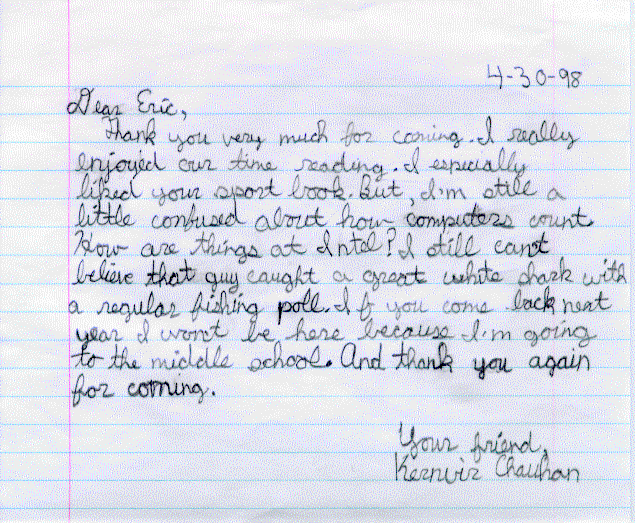 4-30-98
Dear Eric,
Thank you very much for coming. I really
enjoyed our time reading. I especially
liked your sport book. But, I'm still a
little confused about how computers count.
How are things at Intel? I still can't
believe that guy caught a great white shark with
a regular fishing poll. If you come back next
year I won't be here because I'm going
to the middle school. And thank you again
for coming.
Your friend,
Kernvir Chauhan